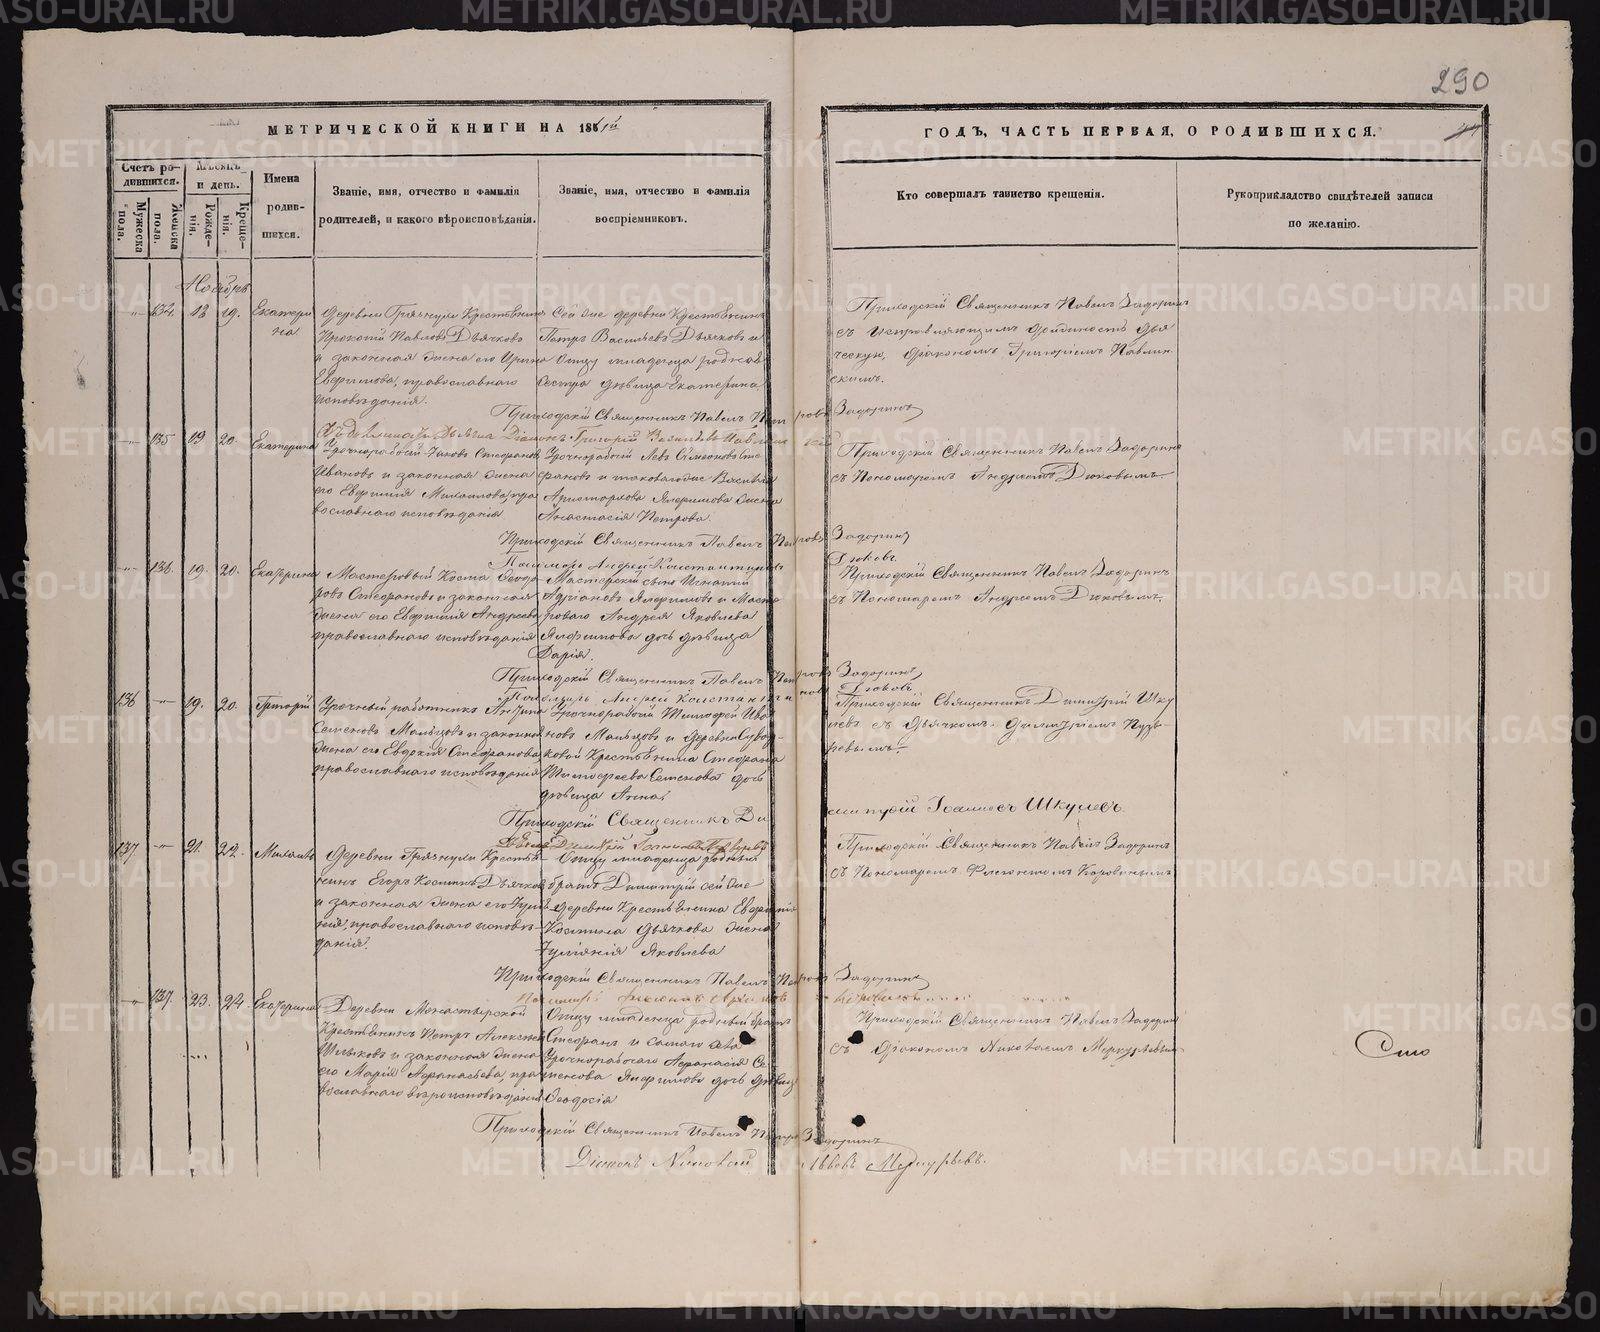 290
МЕТРИЧЕСКОЙ КНИГИ НА 1861й
ГОДЪ, ЧАСТЬ ПЕРВАЯ, О РОДИВШИХСЯ.
Счетъ ро-
дившихся.
Мужеска
пола.
Женска
пола.
Мѣсяцъ
и день.
Рожде-
нія.
Креще-
нія.
Имена
родив-
шихся.
Званіе, имя, отчество и фамилія
родителей, и какого вѣроисповѣданія.
Званіе, имя, отчество и фамилія
воспріемниковъ.
Кто совершалъ таинство крещенія.
Рукоприкладство свидѣтелей записи
по желанію.
Ноябрь
134. 18 19. Екатери
на
Деревни Грязнухи Крестьянинъ
Прокопій Павловъ Дьячковъ
и законная жена его Ирина
Евфимова, православнаго
исповѣданія.
Сей же деревни Крестьянинъ
Петръ Васильевъ Дьячковъ и
Отцу младенца родная
сестра дѣвица Екатерина
Приходскій Священникъ Павелъ Задоринъ
съ исправляющимъ должность дья
ческую, Діакономъ Григоріемъ Павлин
скимъ.
Приходскій Священникъ Павелъ Петровъ Задоринъ
Діаконъ Григорій
135 19 20. Екатерина
Урочнорабочій Яковъ Стефановъ
Ивановъ и законная жена
его Евфимія Михаилова, пра
вославнаго исповѣданія
Урочнорабочій Левъ Сѵмеоновъ Сте
фановъ и таковаго же Василія
Аристархова Ялфимова жена
Анастасія Петрова.
Приходскій Священникъ Павелъ Задоринъ
съ Пономаремъ Андреемъ Дюковымъ.
Приходскій Священникъ Павелъ Петровъ Задоринъ
Пономарь Андрей Константиновъ Дюковъ
136. 19. 20. Екатерина
Мастеровый Косма Ѳеодо
ровъ Стефановъ и законная
жена его Евфимія Андреева
православнаго исповѣданія
Мастерскій сынъ Игнатій
Адріановъ Ялфимовъ и Масте
роваго Андрея Яковлева
Ялфимова дочь дѣвица
Дарія.
Приходскій Священникъ Павелъ Задоринъ
съ Пономаремъ Андреемъ Дюковымъ.
Приходскій Священникъ Павелъ Петровъ Задоринъ
Пономарь Андрей Константиновъ Дюковъ
136 19. 20. Григорій
Урочный работникъ Антипа
Семеновъ Мальцовъ и законная
жена его Евдокія Стефанова
православнаго исповѣданія
Урочнорабочій Тимофей Ива
новъ Мальцовъ и деревни Сувор-
ковой Крестьянина Стефана
Тимофеева Семенова дочь
дѣвица Анна.
Приходскій Священникъ Димитрій Шку
левъ съ Дьячкомъ Димитріемъ
Приходскій Священникъ Ди
митрій Іоанновъ Шкулевъ
137 21. 22. Михаилъ
Деревни Грязнухи Крестья
нинъ Егоръ Косминъ Дьячковъ
и законная жена его Іулія
нія, православнаго исповѣ
данія.
Отцу младенца родный
братъ Димитрій сей же
деревни Крестьянина Евфимія
Космина Дьячкова жена
Іуліянія Яковлева
Приходскій Священникъ Павелъ Задоринъ
съ Пономаремъ Флегонтомъ Коровинымъ
Приходскій Священникъ Павелъ Петровъ Задоринъ
137. 23. 24. Екатерина
Деревни Монастырской
Крестьянинъ Петръ Алексѣевъ
Шлыковъ и законная жена
его Марія Афанасьева, пра
вославнаго вѣроисповѣданія
Отцу младенца родный братъ
Стефанъ и
Урочнорабочаго Афанасія Се
менова Ялфимова дочь дѣвица
Ѳеодосія
Приходскій Священникъ Павелъ Задоринъ
съ Діакономъ Николаемъ Меркурьевымъ
Сто
Приходскій Священникъ Павелъ Петровъ Задоринъ
Діаконъ Николай Львовъ Меркурьевъ.
METRIKI.GASO-URAL.RU